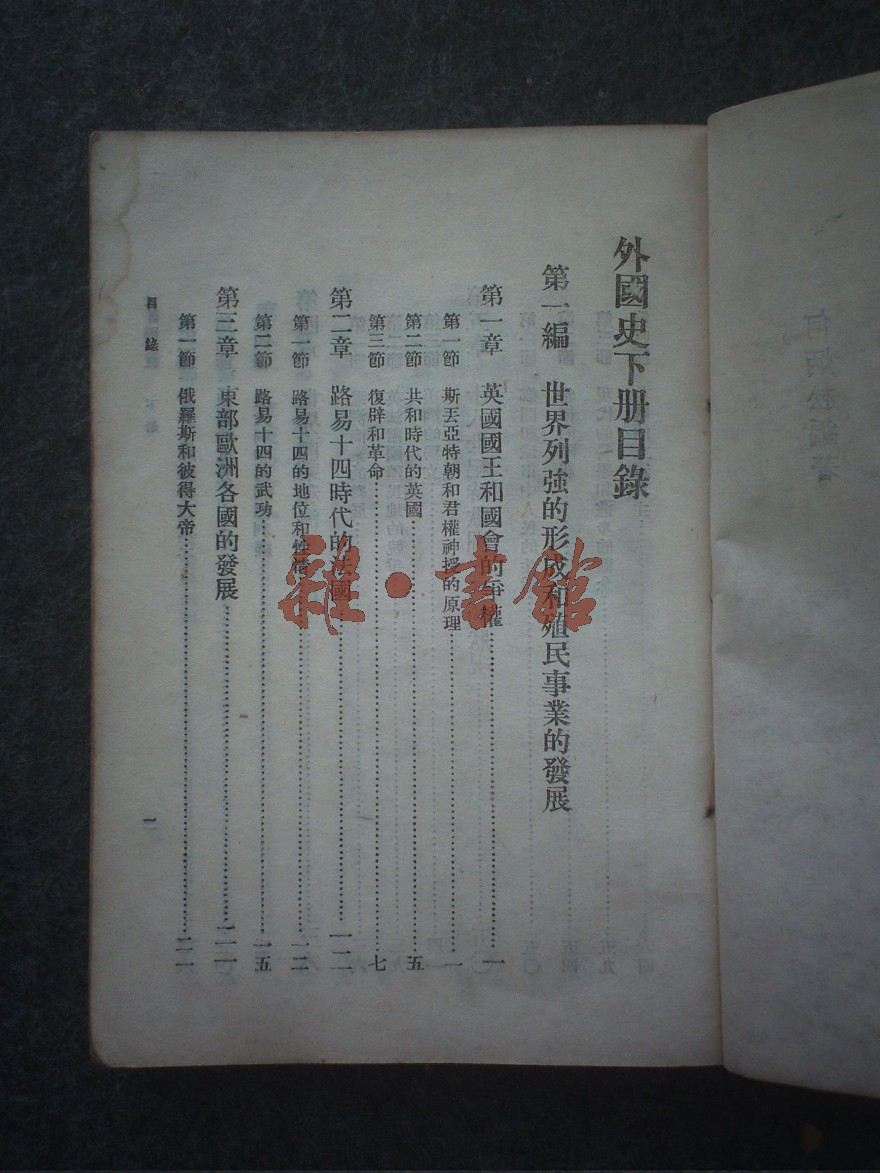 外國史下册目錄
第一編 世界列強的形成和殖民事業的發展
第一章 英國國王和國會的爭權……一
第一節 斯丟亞特朝和君權神授的原理……一
第二節 共和時代的英國……五
第三節 復辟和革命……七
第二章 路易十四時代的法國……一二
第一節 路易十四的地位和性情……一二
第二節 路易十四的武功……一五
第三章 東部歐洲各國的發展……二一
第一節 俄羅斯和彼得大帝……二一
目錄
一
雜·書館